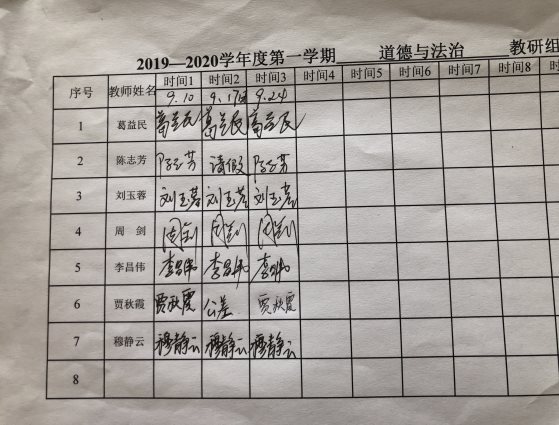 2019—2020学年度第一学期 道德与法治 教研组
序号 教师姓名 时间1 时间2 时间3 时间4 时间5 时间6 时间7 时间8 时
9.10 9.17 9.24
1 葛益民 葛益民 葛益民 葛益民
2 陈志芳 陈志芳 请假 陈志芳
3 刘玉蓉 刘玉蓉 刘玉蓉 刘玉蓉
4 周 剑 周剑 周剑 周剑
5 李昌伟 李昌伟 李昌伟 李昌伟
6 贾秋霞 贾秋霞 公差 贾秋霞
7 穆静云 穆静云 穆静云 穆静云
8